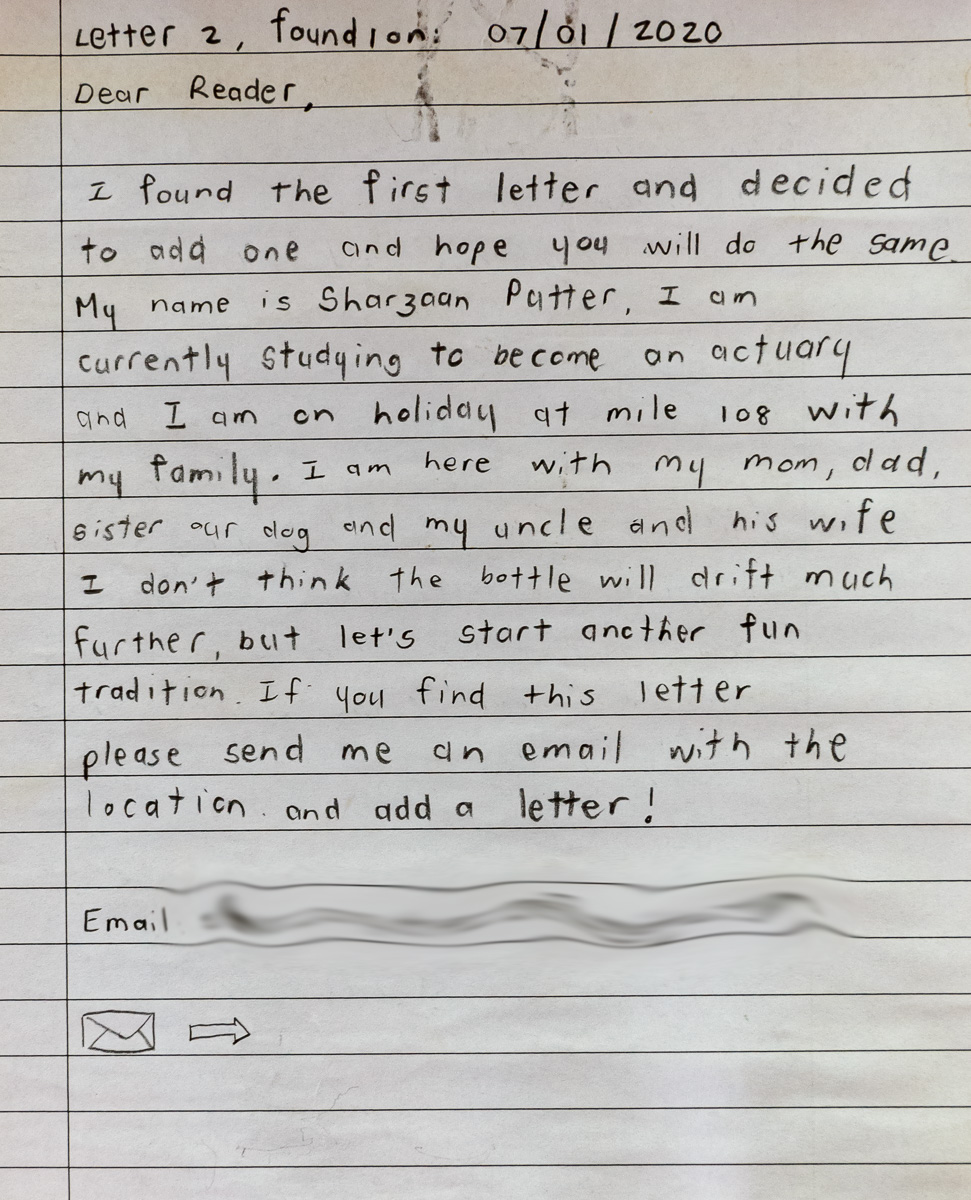 Letter 2, found on: 07/01/2020
Dear Reader,
I found the first letter and decided
to add one and hope you will do the same.
My name is Sharzaan Patter, I am
currently studying to become an actuary
and I am on holiday at mile 108 with
my family. I am here with my mom, dad,
sister our dog and my uncle and his wife
I don't think the bottle will drift much
further, but let's start another fun
tradition. If you find this letter
please send me an email with the
location. and add a letter!
Email